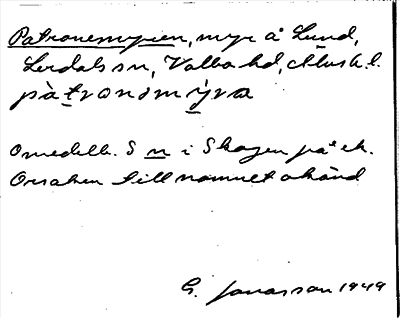 Patronemyren, myr å Lund,
Lerdals sn, Valbo hd, Älvsb. l.
pàtronəmy̌ra
Omedelb. S n i Skogen på ek.
Orsaken till namnet okänd
G. Jonasson 1949